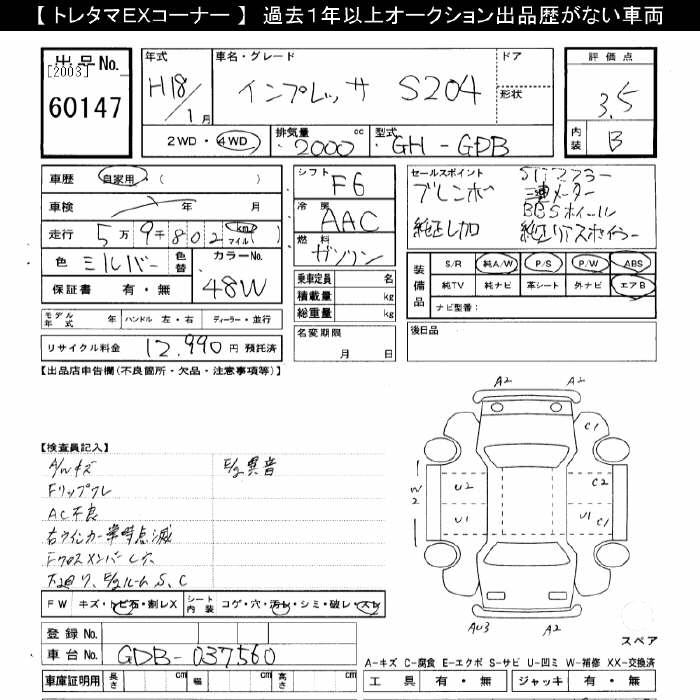 【 トレタマEXコーナー 】 過去1年以上オークション出品歴がない車両
出品No.
[2003]
60147
年式
H18/1月
車名・グレード
インプレッサ S204
ドア
形状
評価点
3.5
内装
B
2WD・4WD
排気量 2000 cc
型式 GH-GDB
車歴 自家用・( )
車検 年 月
走行 5万9千802 km マイル( )
色 シルバー 色替
カラーNo.
48W
保証書 有・無
モデル年式 年 ハンドル 左・右 ディーラー・並行
リサイクル料金 12,990 円 預託済
シフト F6
冷房 AAC
燃料 ガソリン
乗車定員 名
積載量 kg
総重量 kg
名変期限
月 日
セールスポイント
ブレンボ
三連メーター
BBSホイール
純正レカロ 純正リアスポイラー
装備品
S/R 純A/W P/S P/W ABS
純TV 純ナビ 革シート 外ナビ エアB
ナビ型番:
後日品
【出品店申告欄(不良箇所・欠品・注意事項等)】
【検査員記入】
A/Wキズ E/g異音
Fリップワレ
AC不良
右ウインカー常時点滅
Fクロスメンバー
下廻り、E/gルームS、C
A2 A2
C1
W2
U2 C2
U1 U1 C1
AU3 A2
FW キズ・トビ石・割レX シート内装 コゲ・穴・汚レ・シミ・破レ・スレ
登録No.
車台No. GDB-037560
車庫証明用 長さ cm 幅 cm 高さ cm
スペア
A-キズ C-腐食 E-エクボ S-サビ U-凹ミ W-補修 XX-交換済
工具 有・無 ジャッキ 有・無